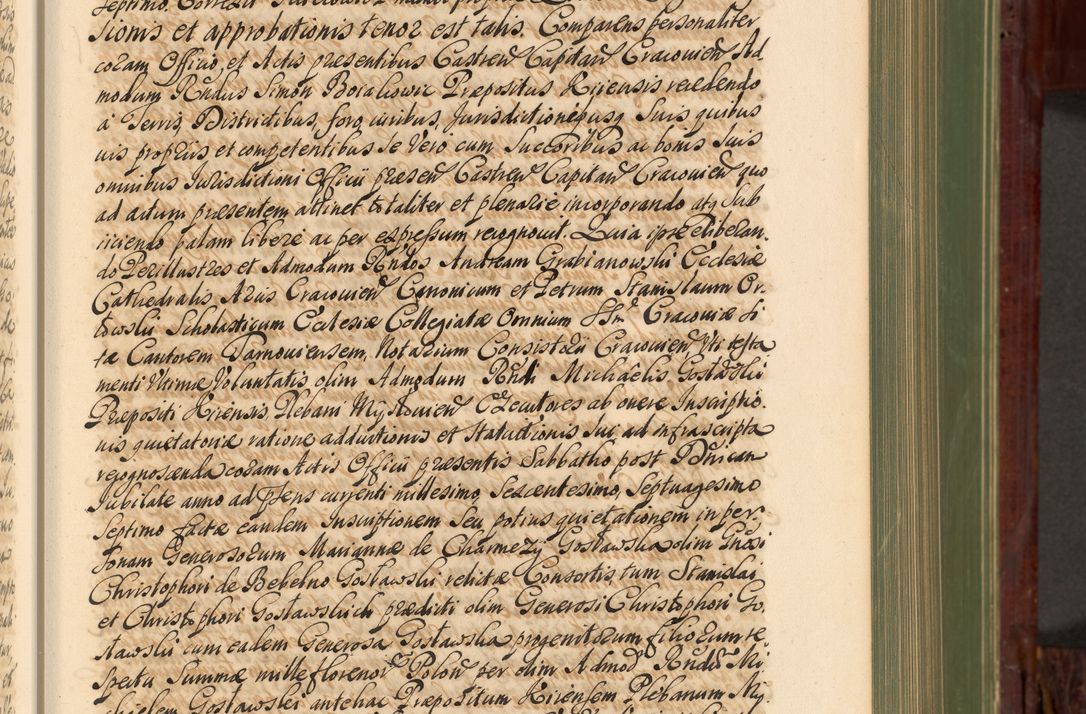 Septimo,
sionis et approbationis tenor est talis. Comparens personaliter
coram Officio, et Actis præsentibus Castren Capitan Cracovien Ad
modum Rndus Simon Præpositus Xiensis recedendo
a Terris, Districtibus, foro, iuribus, Jurisdictionibusq Suis quibus
uis proprijs, et competentibus Se Vero cum Succoribus ac bonis Suis
omnibus Jurisdictioni Officii præsen Castren Capitan Cracovien quo
ad actum præsentem attinet totaliter et plenarie incorporando atq Sub
iiciendo palam libere ac per expressum recognovit. Quia ipse
do Perillustres et Admodum Rndos Andream Grabianowski Ecclesiæ
Cathedralis Arcis Cracovien Canonicum et Petrum Stanislaum Or
towski Scholasticum Ecclesiæ Collegiatæ Omnium SSm Cracoviæ Si
tæ Cantorem Tarnoviensem, Notarium Consistorii Cracovien Vti testa
menti Vltimæ Voluntatis olim Admodum Rndi Michaelis Gosławski
Præpositi Xiensis Plebani Executores ab onere Inscriptio
nis quietatoriæ ratione adductionis et Statuitionis Sui ad infrascripta
recognoscenda coram Actis Officii præsentis Sabbatho post Dnicam
Jubilate anno ad præsens currenti millesimo, Sexcentesimo, Septuagesimo
Septimo factæ eandem Inscriptionem Seu potius quietationem in per
sonam Generosorum Mariannæ de Charmezy Gosławska olim Gnosi
Christophori de Bebelno Gosławski relictæ Consortis, tum Stanislai
et Christophori Gosławskich prædicti olim Generosi Christophori Go
sławski cum eadem Generosa Gosławska progenitorum filiorum re
spectu Summæ mille florenor Polon per olim Admod Rndu Mi
chaelem Gosławski antehac Præpositum Xiensem Plebanum